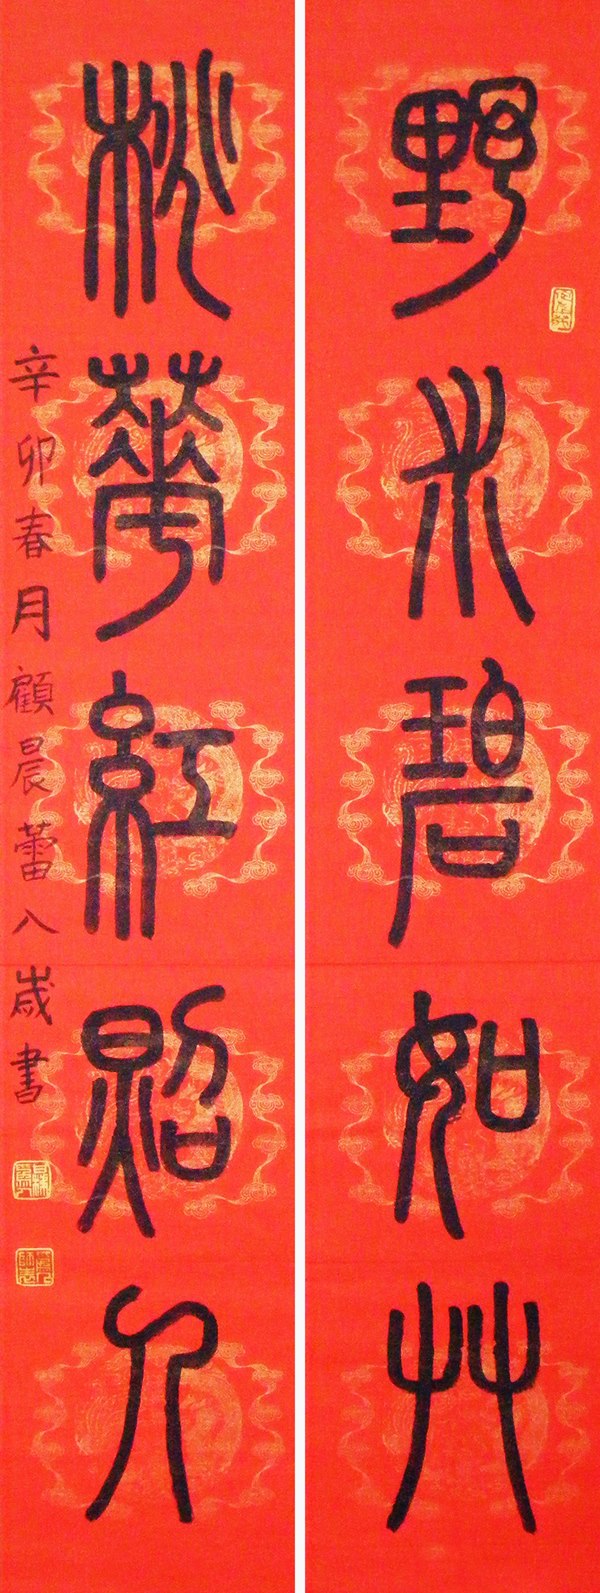 野水碧如艸
桃華紅照人
辛卯春月顧晨蕾八歲書